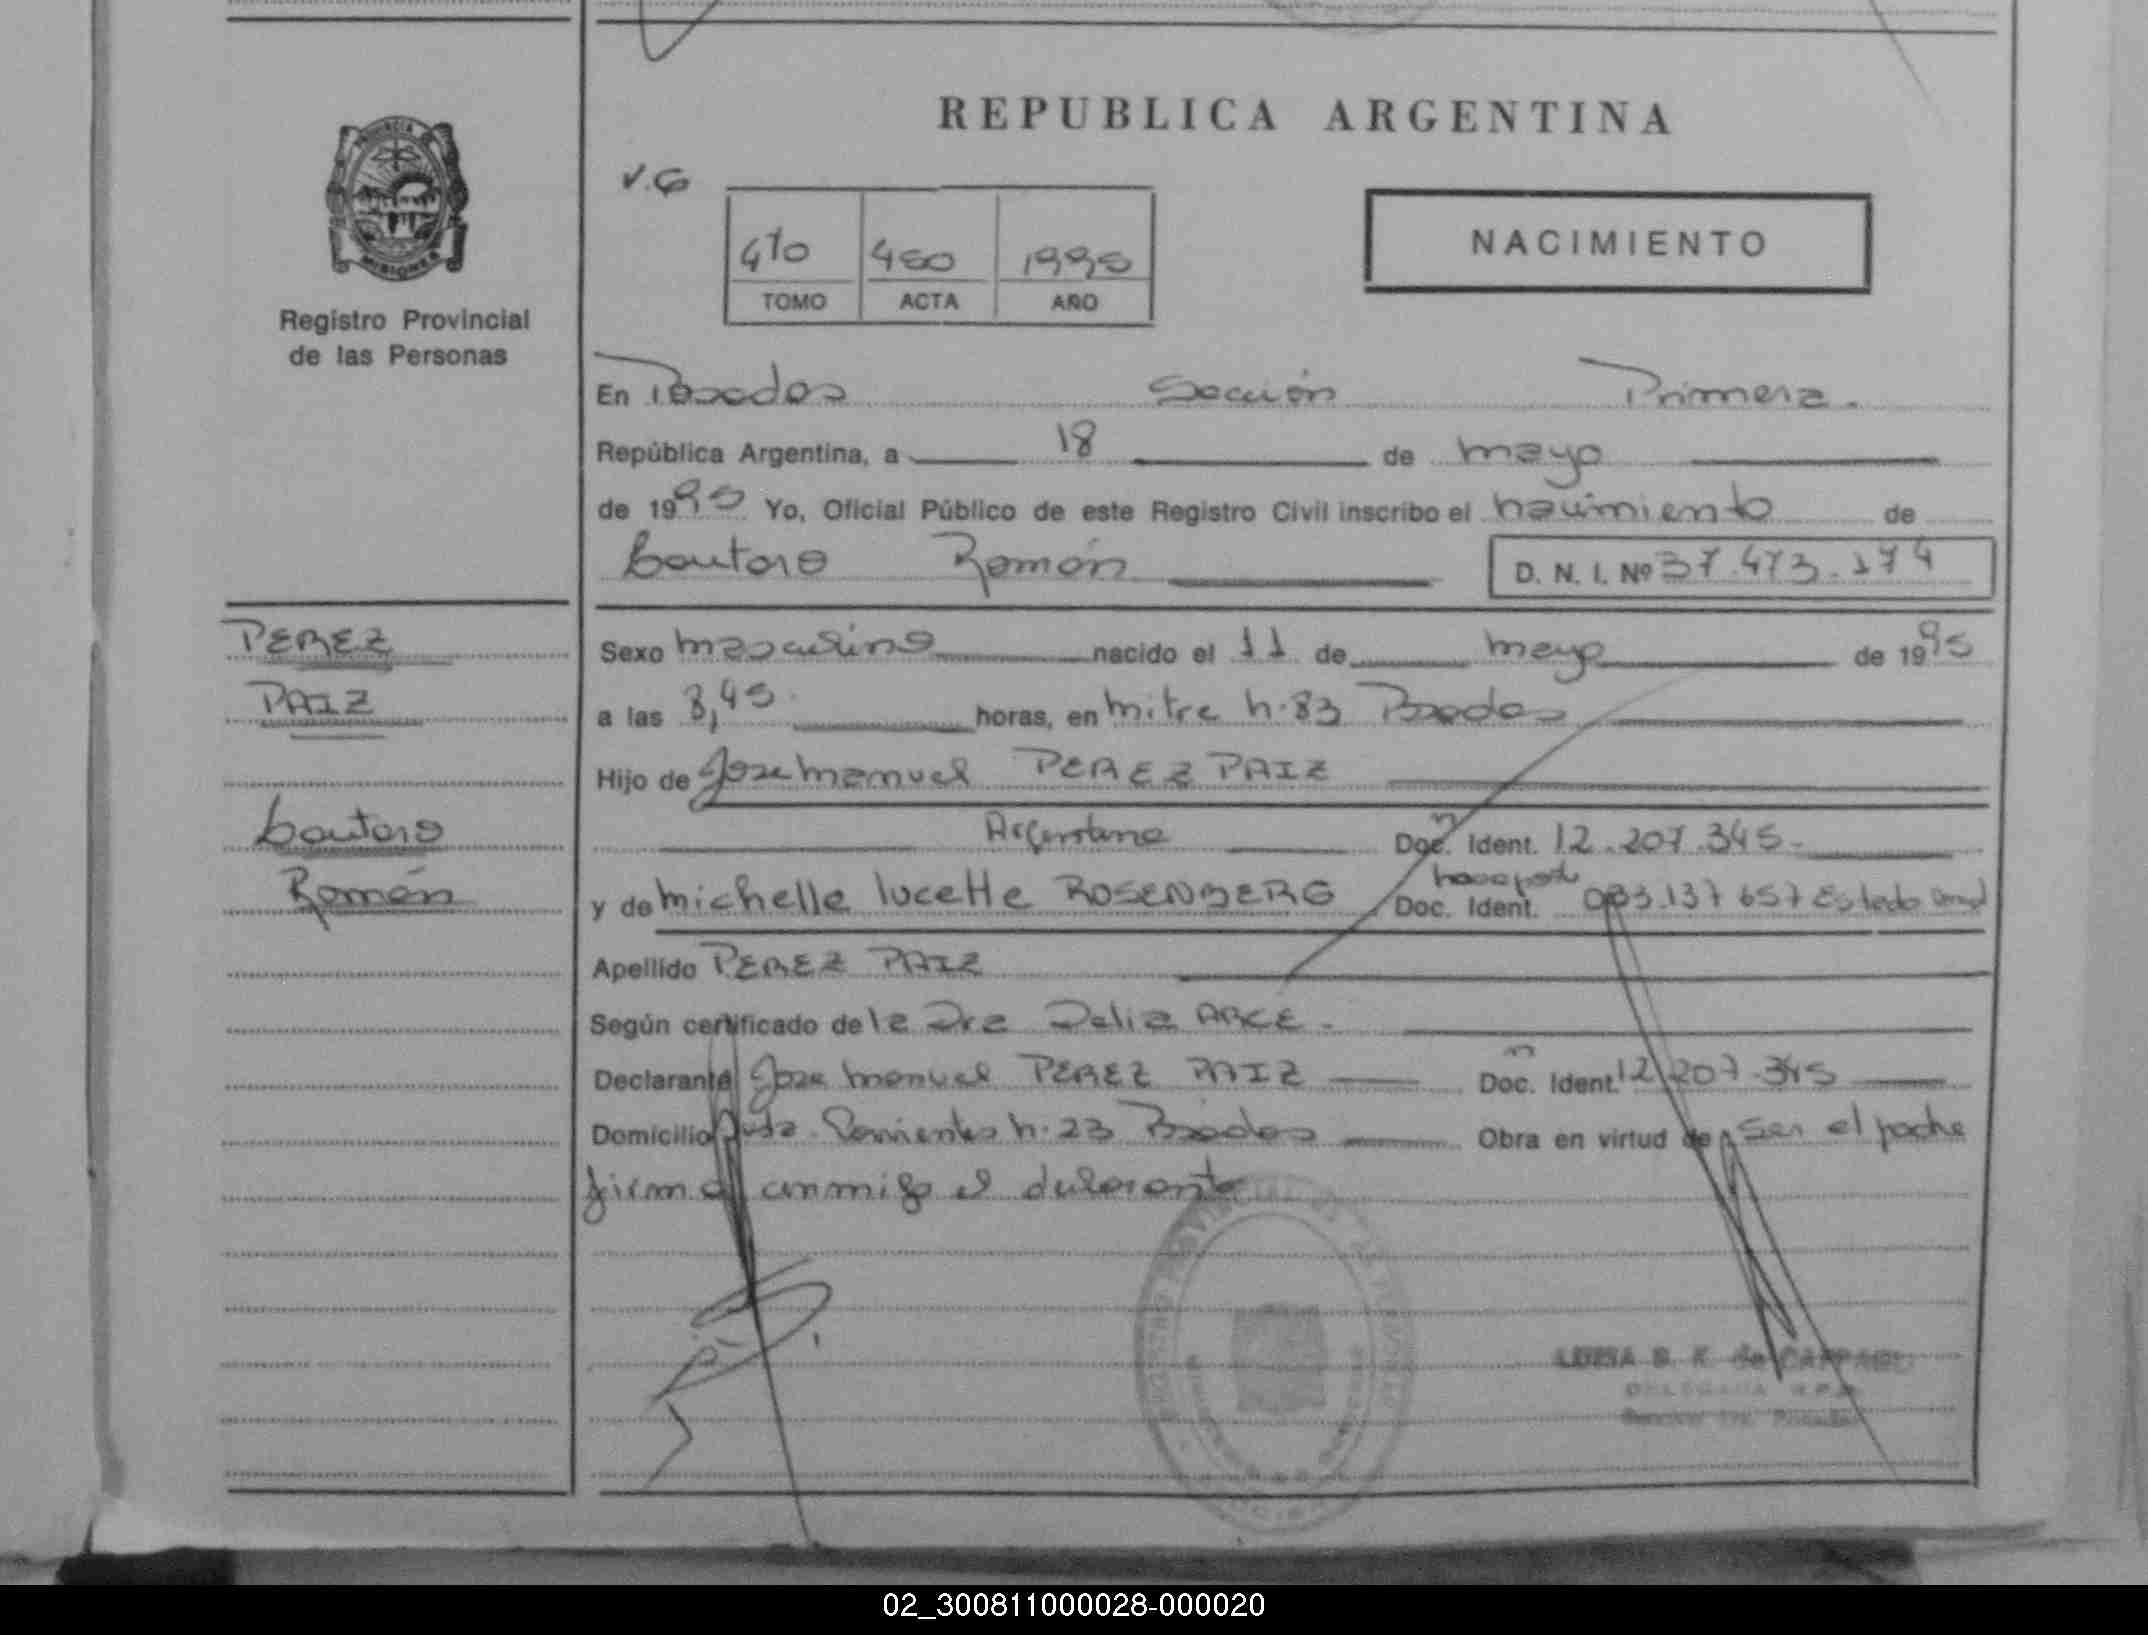 REPUBLICA ARGENTINA
V.G
4to 450 1995
TOMO ACTA AÑO
NACIMIENTO
MISIONES
Registro Provincial
de las Personas
En Posadas Sección Primera.
República Argentina, a 18 de mayo
de 1995 Yo, Oficial Público de este Registro Civil inscribo el nacimiento de
Lautaro Román D. N. I. Nº 37.473.174
PEREZ
PAIZ
Lautaro
Román
Sexo masculino nacido el 11 de mayo de 1995
a las 8,45 horas, en mitre n. 83 Posadas
Hijo de Jose manuel PEREZ PAIZ
Argentino Doc. Ident. 12.207.345.
y de michelle lucette ROSENBERG Doc. Ident. 083.137657 Estado
Apellido PEREZ PAIZ
Según certificado de la Dra Delia ARCE.
Declarante Jose manuel PEREZ PAIZ Doc. Ident. 12.207.345
Domicilio Avda. Corrientes n. 23 Posadas Obra en virtud de ser el padre
firma conmigo el declarante
LUISA B. K. de
DELEGADA R.P.P.
02_300811000028-000020